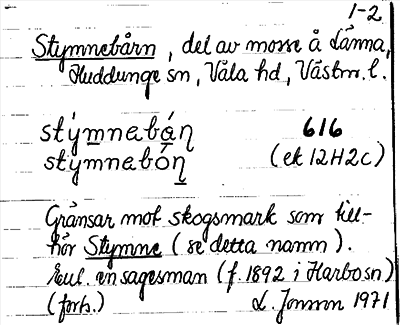 1-2
Stymnebårn, del av mosse å Länna,
Huddunge sn, Våla hd, Västm. l.
stýmnebàṇ 616
stymnebóṇ (ek 12H2c)
Gränsar mot skogsmark som till-
hör Stymne (se detta namn).
Enl. en sagesman (f. 1892 i Harbo sn)
(forts.) L. Jonson 1971